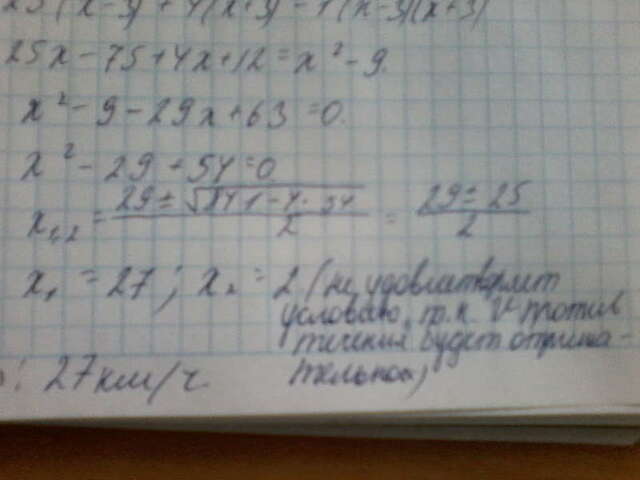 25(x-3)+4(x+3)=1(x-3)(x+3)
25x-75+4x+12=x²-9.
x²-9-29x+63=0.
x²-29+54=0
x₁,₂ = (29±√841-4·54)/2 = (29±25)/2
x₁ = 27; x₂ = 2 (не удовлетворяет
условию, т.к. V против
течения будет отрица-
тельной)
27 км/ч.